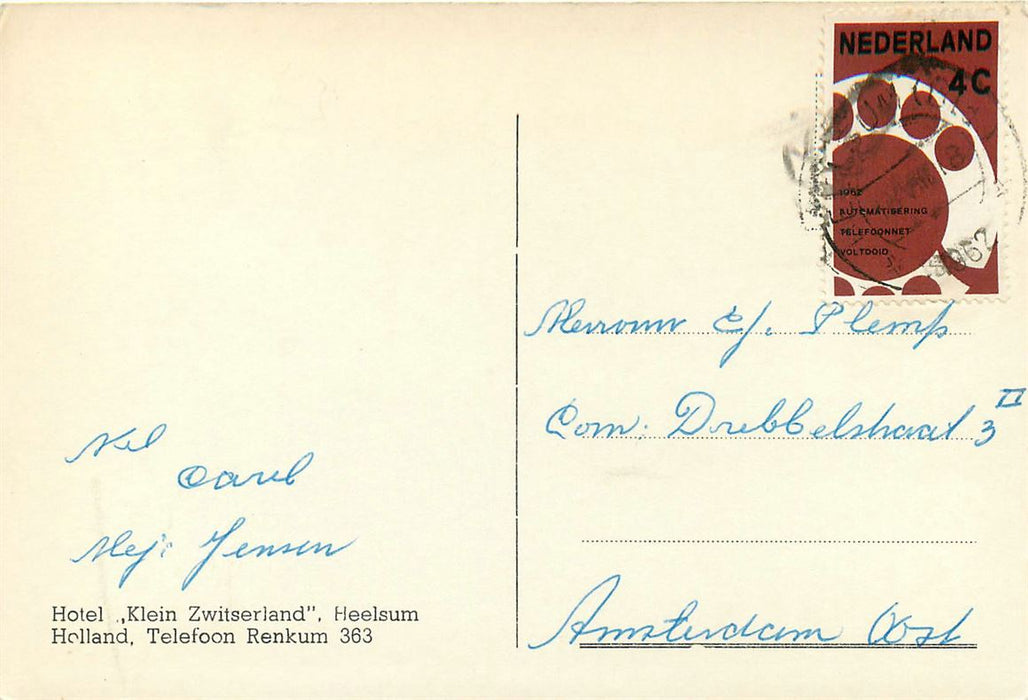 NEDERLAND
4C
1962
AUTOMATISERING
TELEFOONNET
VOLTOOID
1962
Mevrouw C/. Plemp
Corn. Drebbelstraat 3 II
Amsterdam Oost
Nel
Carel
Mej. Jensen
Hotel „Klein Zwitserland”, Heelsum
Holland, Telefoon Renkum 363